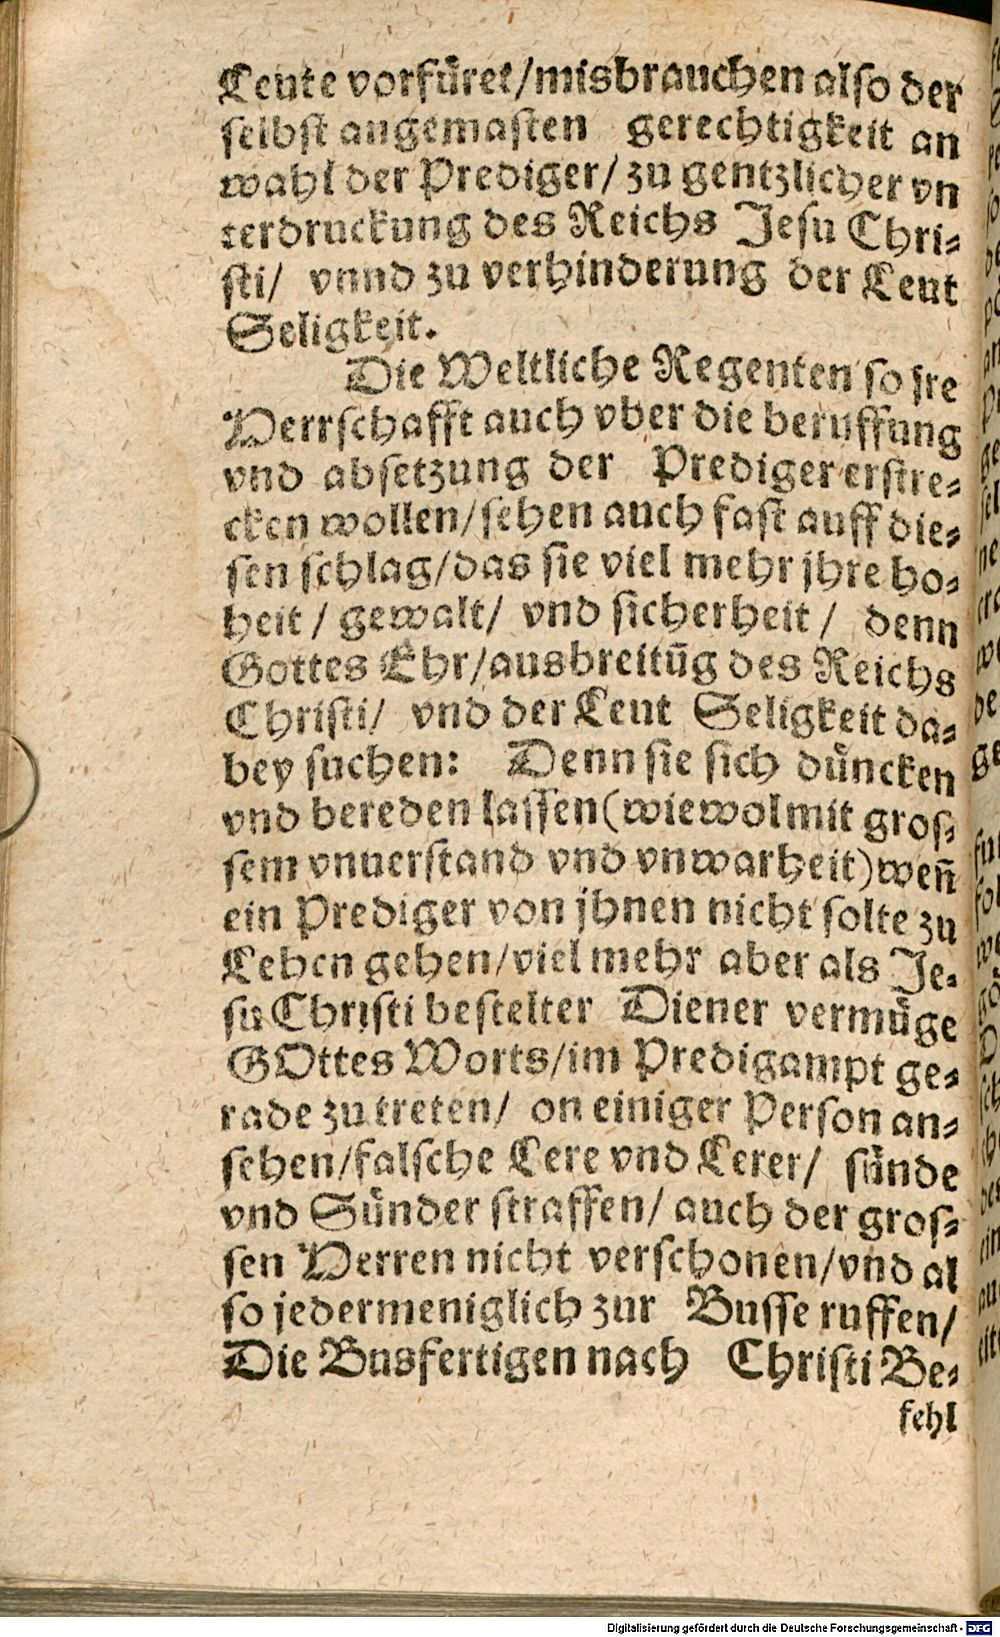 Leute vorfüret/misbrauchen also der
selbst angemasten gerechtigkeit an
wahl der Prediger/ zu gentzlicher vn
terdruckung des Reichs Jesu Chri⸗
sti/ vnnd zu verhinderung der Leut
Seligkeit.
Die Weltliche Regenten so jre
Herrschafft auch vber die beruffung
vnd absetzung der Prediger erstre⸗
cken wollen/sehen auch fast auff die⸗
sen schlag/das sie viel mehr jhre ho⸗
heit/ gewalt/ vnd sicherheit/ denn
Gottes Ehr/ausbreitūg des Reichs
Christi/ vnd der Leut Seligkeit da⸗
bey suchen: Denn sie sich düncken
vnd bereden lassen(wiewol mit gros⸗
sem vnuerstand vnd vnwarheit)weñ
ein Prediger von jhnen nicht solte zu
Lehen gehen/viel mehr aber als Je⸗
su Christi bestelter Diener vermüge
GOttes Worts/im Predigampt ge⸗
rade zu treten/ on einiger Person an⸗
sehen/falsche Lere vnd Lerer/ sünde
vnd Sünder straffen/ auch der gros⸗
sen Herren nicht verschonen/vnd al
so jedermeniglich zur Busse ruffen/
Die Busfertigen nach Christi Be⸗
fehl
Digitalisierung gefördert durch die Deutsche Forschungsgemeinschaft - DFG